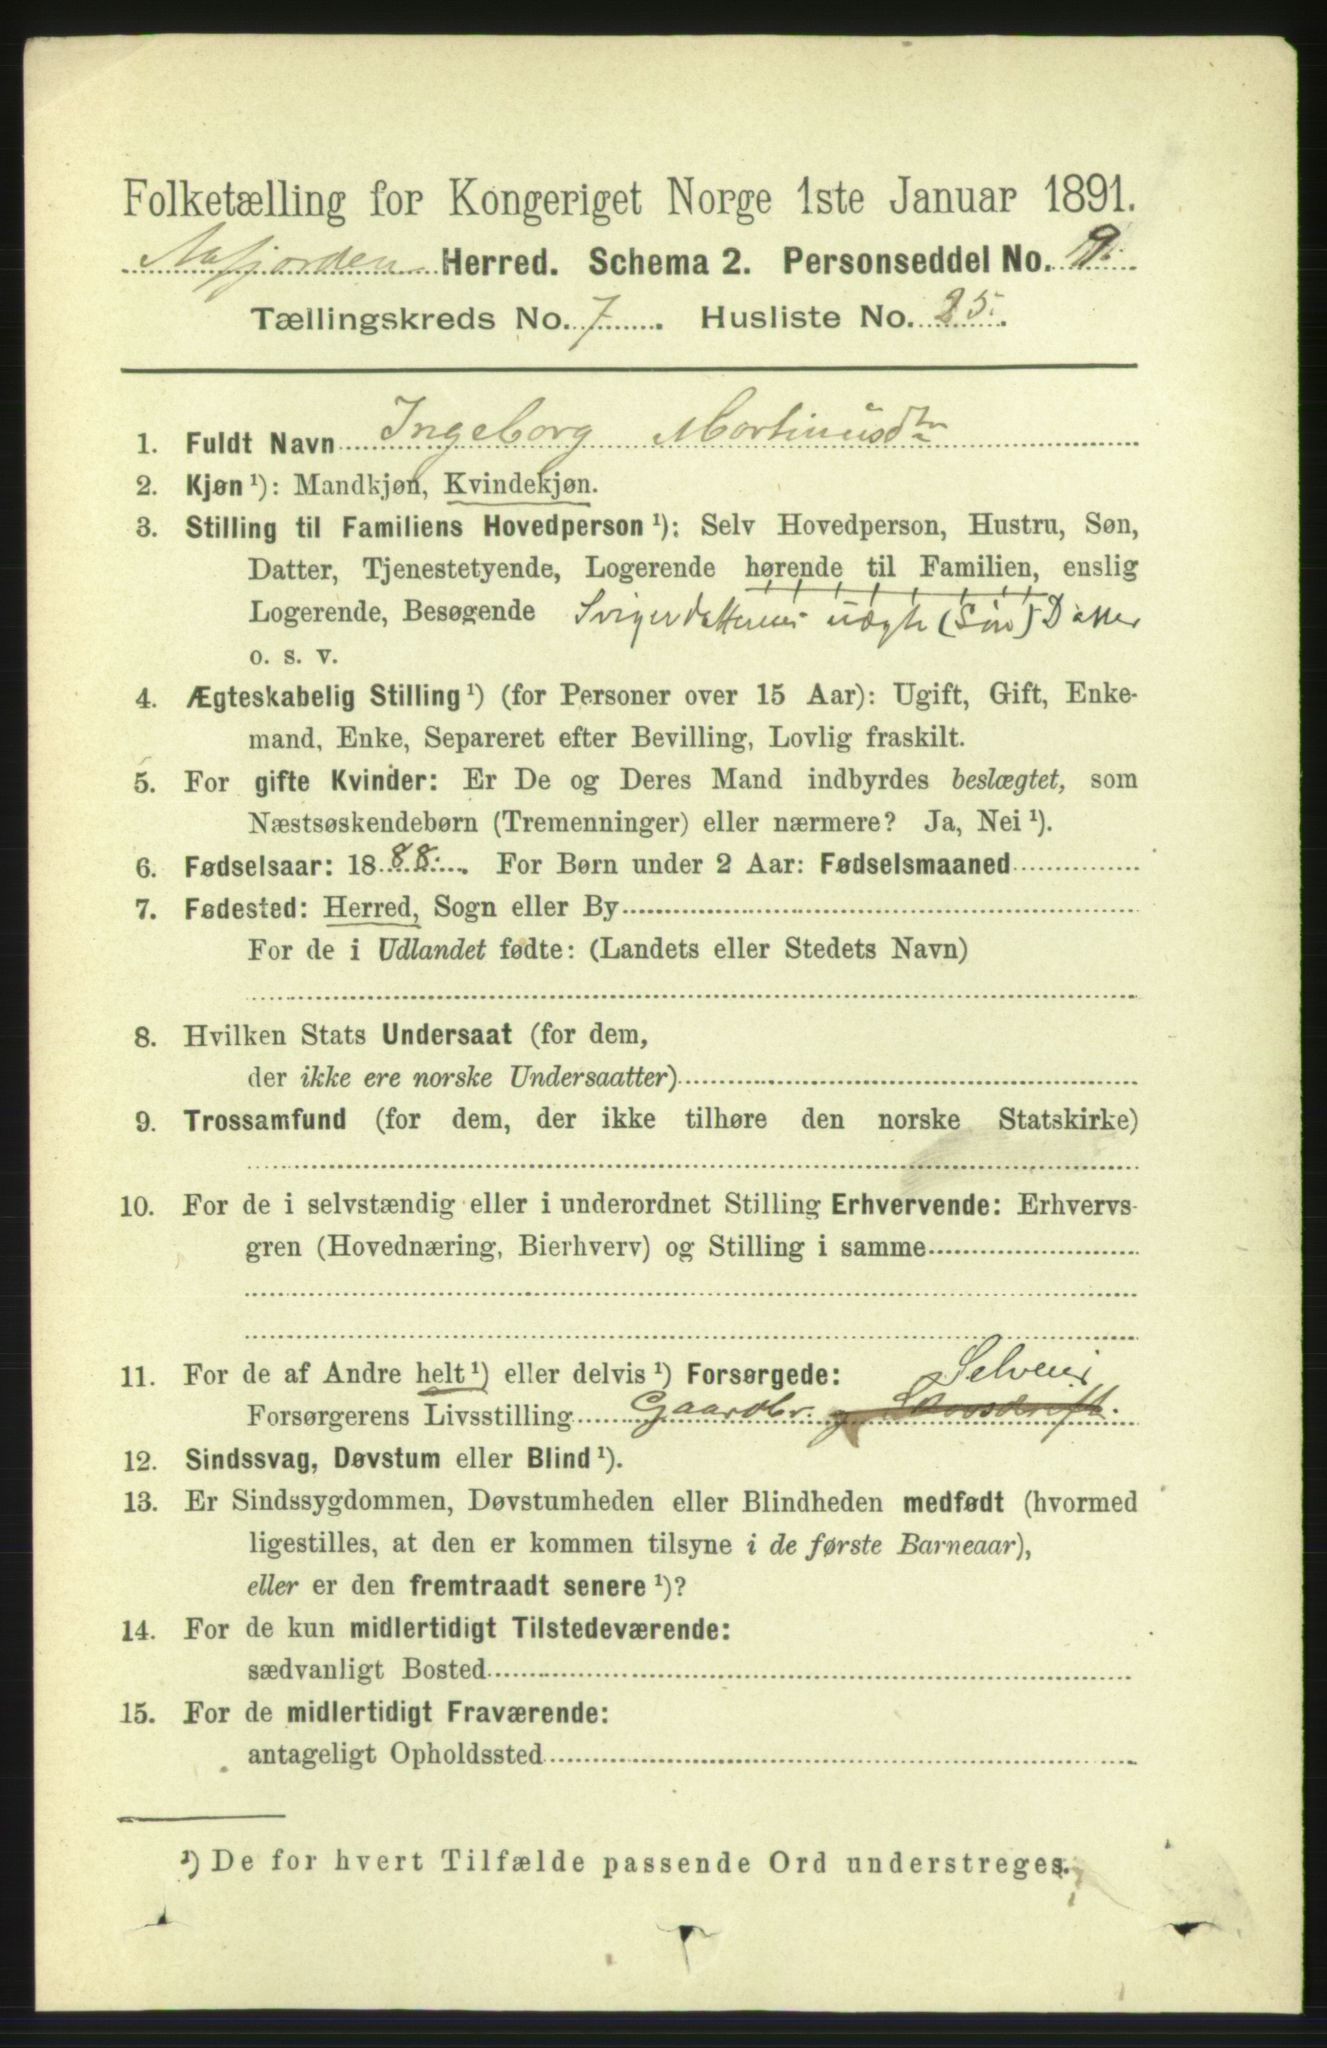 Folketælling for Kongeriget Norge 1ste Januar 1891.
Aafjorden Herred. Schema 2. Personseddel No. 9.
Tællingskreds No. 7. Husliste No. 25.
1. Fuldt Navn Ingeborg Martinusdtr
2. Kjøn ¹): Mandkjøn, Kvindekjøn.
3. Stilling til Familiens Hovedperson ¹): Selv Hovedperson, Hustru, Søn,
Datter, Tjenestetyende, Logerende hørende til Familien, enslig
Logerende, Besøgende Svigerdatterens uægte (Søn) Datter
o. s. v.
4. Ægteskabelig Stilling ¹) (for Personer over 15 Aar): Ugift, Gift, Enke-
mand, Enke, Separeret efter Bevilling, Lovlig fraskilt.
5. For gifte Kvinder: Er De og Deres Mand indbyrdes beslægtet, som
Næstsøskendebørn (Tremenninger) eller nærmere? Ja, Nei ¹).
6. Fødselsaar: 1888. For Børn under 2 Aar: Fødselsmaaned
7. Fødested: Herred, Sogn eller By
For de i Udlandet fødte: (Landets eller Stedets Navn)
8. Hvilken Stats Undersaat (for dem,
der ikke ere norske Undersaatter)
9. Trossamfund (for dem, der ikke tilhøre den norske Statskirke)
10. For de i selvstændig eller i underordnet Stilling Erhvervende: Erhvervs-
gren (Hovednæring, Bierhverv) og Stilling i samme
11. For de af Andre helt ¹) eller delvis ¹) Forsørgede: Selveier
Forsørgerens Livsstilling Gaardbr.
12. Sindssvag, Døvstum eller Blind ¹).
13. Er Sindssygdommen, Døvstumheden eller Blindheden medfødt (hvormed
ligestilles, at den er kommen tilsyne i de første Barneaar),
eller er den fremtraadt senere ¹)?
14. For de kun midlertidigt Tilstedeværende:
sædvanligt Bosted
15. For de midlertidigt Fraværende:
antageligt Opholdssted
¹) De for hvert Tilfælde passende Ord understreges.